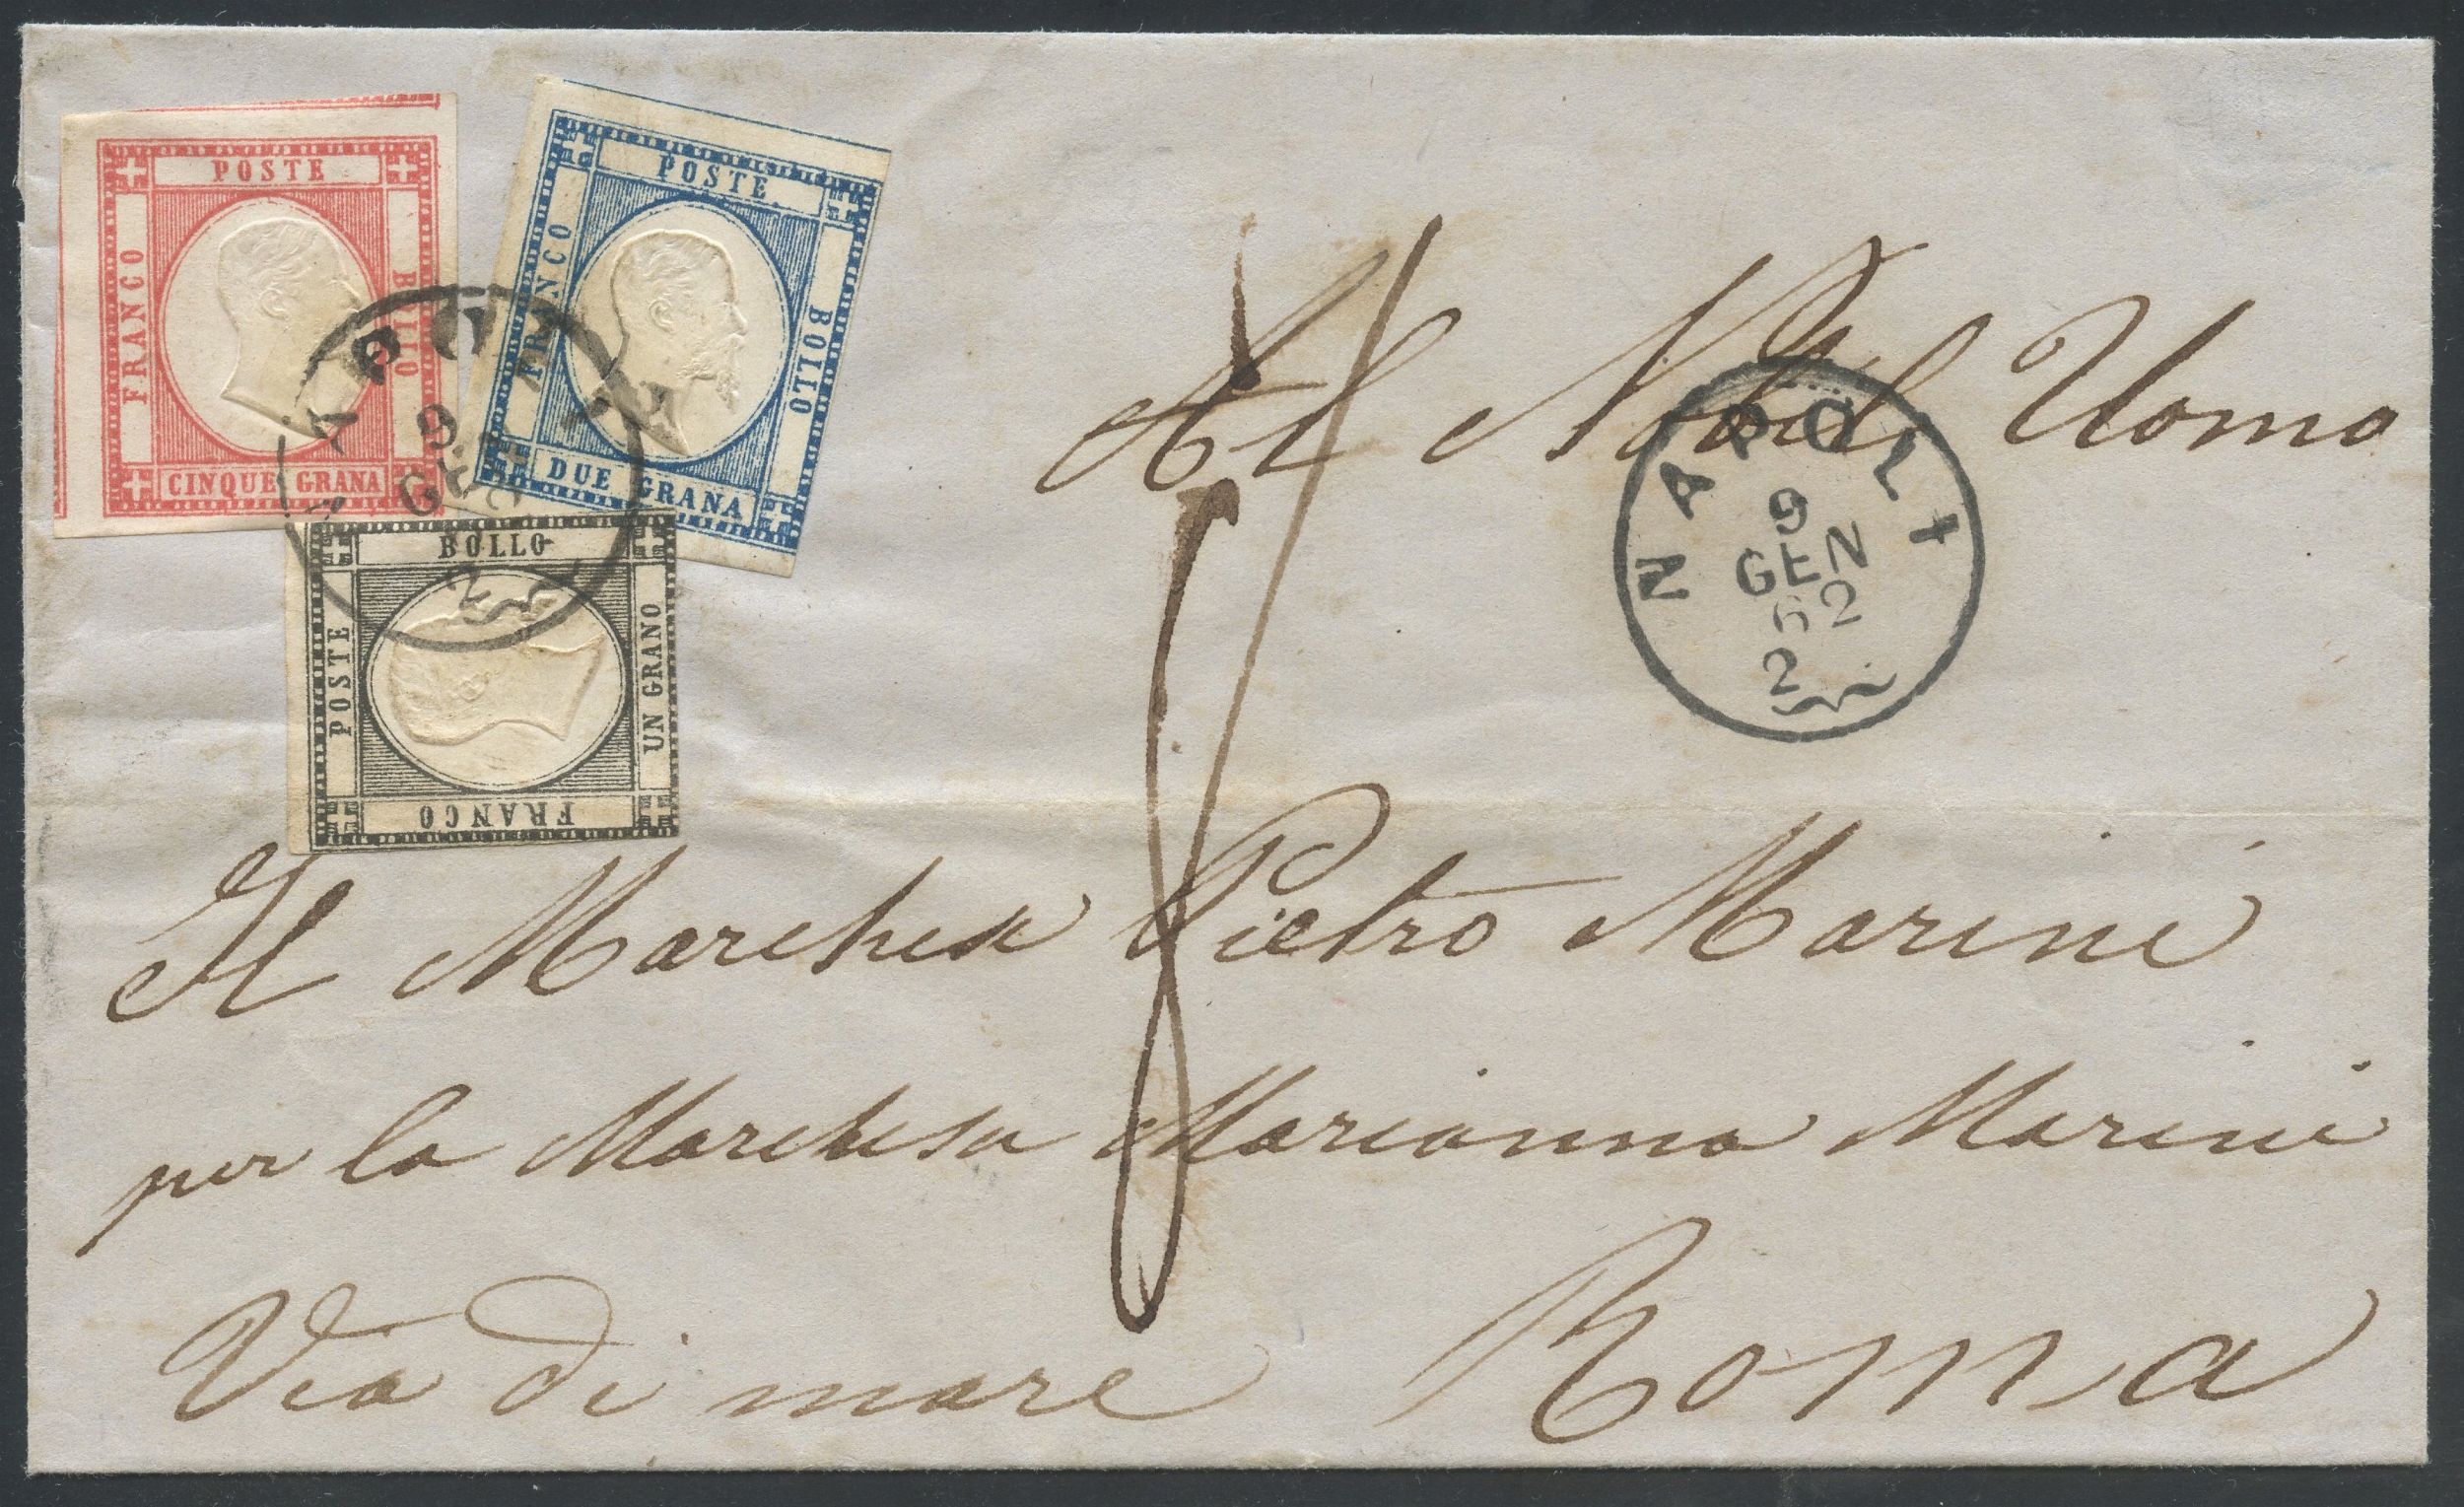 POSTE
FRANCO
BOLLO
CINQUE GRANA
POSTE
FRANCO
BOLLO
DUE GRANA
BOLLO
POSTE
UN GRANO
FRANCO
NAPOLI
9
GEN
62
2
NAPOLI
9
GEN
62
2
Al Nobil Uomo
Il Marchese Pietro Marini
per la Marchesa Marianna Marini
Via di mare Roma
8